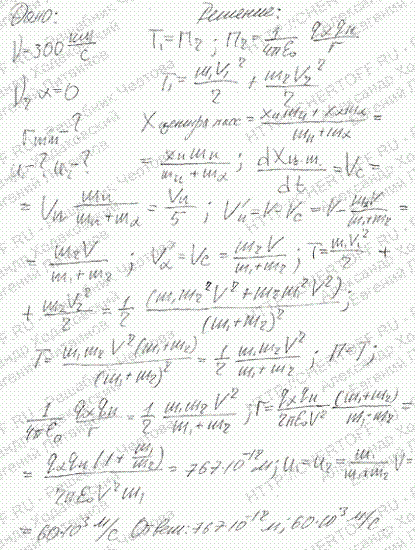 Дано: Решение:
V=300 км/с T₁=П₂; П₂=1/(4πε₀) qαqп/r
V₂, α=0 T₁=m₁V₁²/2 + m₂V₂²/2
rmin-? X центра масс = (xпmп+xαmα)/(mп+mα) =
u₁-? u₂-? = xпmп/(mп+mα); dXц.m./dt = Vc =
= Vп mп/(mп+mα) = Vп/5; Vп'=V-Vc=V-m₁V/(m₁+m₂)=
= m₂V/(m₁+m₂); Vα'=Vc=m₂V/(m₁+m₂); T=m₁V₁²/2 +
+ m₂V₂²/2 = 1/2 (m₁m₂²V²+m₂m₁²V²)/(m₁+m₂)²;
T=m₁m₂V²(m₁+m₂)/(m₁+m₂)² = 1/2 m₁m₂V²/(m₁+m₂); П=T;
1/(4πε₀) qαqп/r = 1/2 m₁m₂V²/(m₁+m₂); r=qαqп/(2πε₀V²) (m₁+m₂)/(m₁·m₂) =
= qαqп(1+m₁/m₂)/(2πε₀V²m₁) = 767·10⁻¹² м; u₁=u₂=m₁/(m₁+m₂) V=
= 60·10³ м/с Ответ: 767·10⁻¹² м, 60·10³ м/с